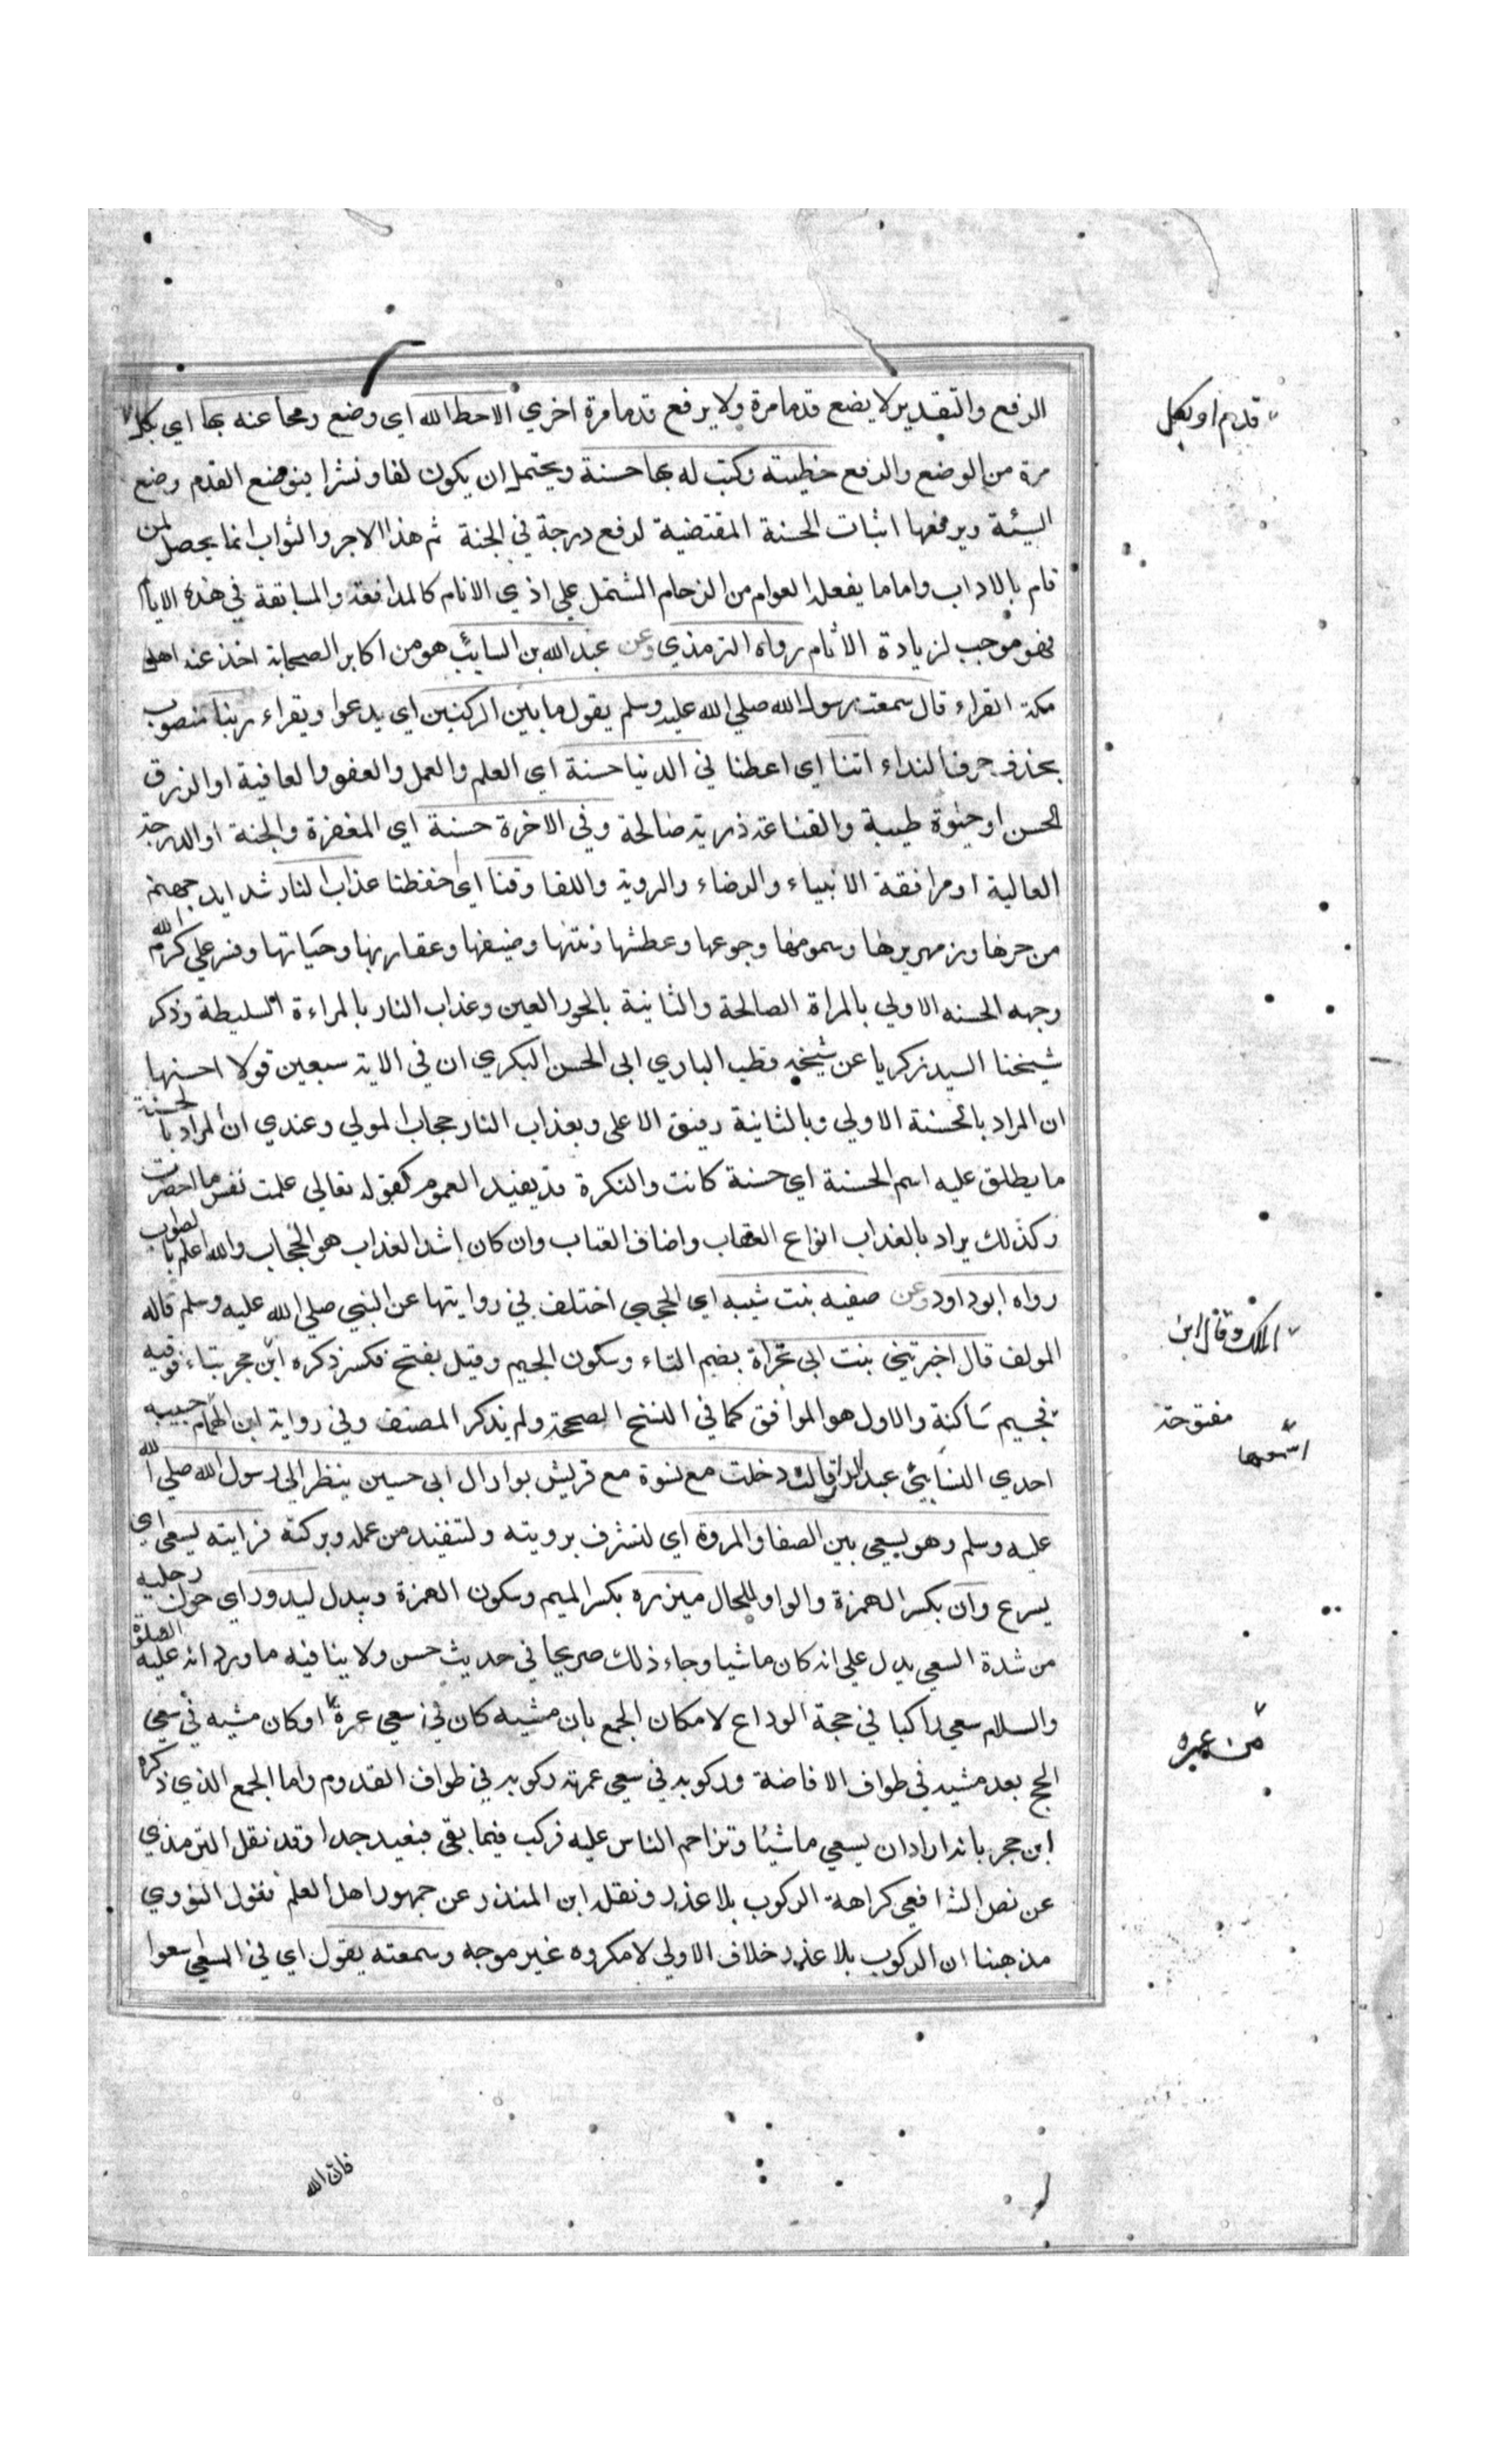 الرفع والتقدير لا يضع قدما مرة ولا يرفع قدما مرة اخري الا حط الله اي وضع ومحا عنه بها اي بكل
قدم او بكل
مرة من الوضع والرفع خطيئته وكتب له بها حسنة ويحتمل ان يكون لفا ونشرا فبوضع القدم وضع
السيئة وبرفعها اثبات الحسنة المقتضية لرفع درجة في الجنة ثم هذا الاجر والثواب انما يحصل لمن
قام بالاداب واما ما يفعله العوام من الزحام المشتمل علي اذي الانام كالمدافعة والمسابقة في هذه الايام
فهو موجب لزيادة الاثام رواه الترمذي وعن عبد الله بن السائب هو من اكابر الصحابة اخذ عنه اهل
مكة القراء قال سمعت رسول الله صلي الله عليه وسلم يقول ما بين الركنين اي يدعوا ويقراء ربنا منصوب
بحذف حرف النداء اتنا اي اعطنا في الدنيا حسنة اي العلم والعمل والعفو والعافية او الرزق
الحسن او حيوة طيبة والقناعة ذرية صالحة وفي الاخرة حسنة اي المغفرة والجنة او الدرجة
العالية او مرافقة الانبياء والرضاء والروية واللقا وقنا اي احفظنا عذاب النار شدايد جهنم
من حرها وزمهريرها وسمومها وجوعها وعطشها ونتنها وضيقها وعقاربها وحياتها وفسر علي كرم الله
وجهه الحسنه الاولي بالمراة الصالحة والثانية بالحور العين وعذاب النار بالمراءة السليطة وذكر
شيخنا السيد زكريا عن شيخه قطب الباري ابي الحسن البكري ان في الاية سبعين قولا احسنها
ان المراد بالحسنة الاولي وبالثانية رفيق الاعلى وبعذاب النار حجاب المولي وعندي ان المراد بالحسنة
ما يطلق عليه اسم الحسنة اي حسنة كانت والنكرة قد يفيد العموم كقوله تعالي علمت نفس ما احضرت
وكذلك يراد بالعذاب انواع العقاب واضاف العتاب وان كان اشد العذاب هو الحجاب والله اعلم بالصواب
رواه ابو داود وعن صفيه بنت شيبه اي الحجبي اختلف في روايتها عن النبي صلي الله عليه وسلم قاله
المولف قال اخبرتني بنت ابي تجراة بضم التاء وسكون الجيم وقيل بفتح فكسر ذكره ابن حجر بتاء فوقيه
الملك وقال ابن
فجيم ساكنة والاول هو الموافق كما في النسخ الصححة ولم يذكر المصنف وفي رواية ابن الهمام حبيبه
مفتوحة
احدي النسايي عبد الدار قالت دخلت مع نسوة مع قريش بوادال ابي حسين ينظر الي رسول الله صلي الله
عليه وسلم وهو يسعي بين الصفا والمروة اي لنشرف برويته ولتفيد من عمله وبركته فرايته يسعي اي
يسرع وان بكسر الهمزة والواو للحال ميزره بكسر الميم وسكون الهمزة ويبدل ليدور اي حول رجليه
من شدة السعي يدل علي انه كان ماشيا وجاء ذلك صريحا في حديث حسن ولا ينافيه ما ورد انه عليه الصلوة
والسلام سعي راكبا في حجة الوداع لامكان الجمع بان مشيه كان في سعي عرة او كان مشيه في سعي
من عمره
الحج بعد مشيه في طواف الافاضة وركوبه في سعي عمرته ركوبه في طواف القدوم واما الجمع الذي ذكره
ابن حجر بانه اراد ان يسعي ماشيًا وتزاحم الناس عليه فركب فيما بقي فبعيد جدا وقد نقل الترمذي
عن نص الشافعي كراهة الركوب بلا عذر ونقله ابن المنذر عن جمهور اهل العلم فقول النووي
مذهبنا ان الركوب بلا عذر خلاف الاولي لا مكروه غير موجه وسمعته يقول اي في السعي اسعوا
فان الله